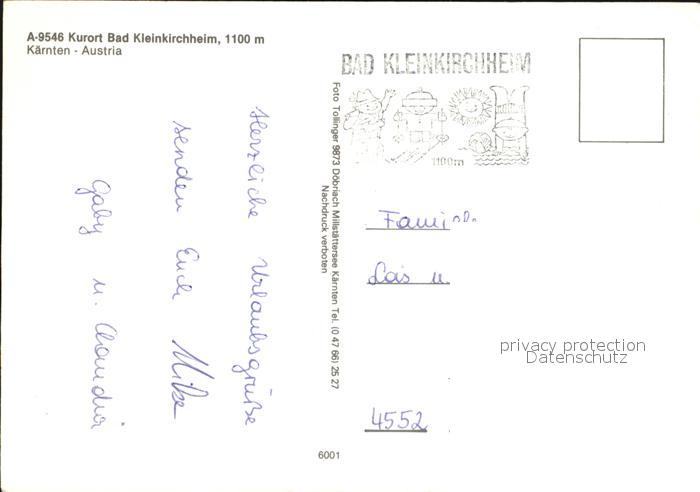 A-9546 Kurort Bad Kleinkirchheim, 1100 m
Kärnten - Austria
BAD KLEINKIRCHHEIM
1100m
Herzliche Urlaubsgrüße
senden Euch Mike
Gaby u. Claudia
Foto Tollinger 9873 Döbriach Millstättersee Kärnten Tel. (0 47 66) 25 27
Nachdruck verboten
u.
4552
privacy protection
Datenschutz
6001